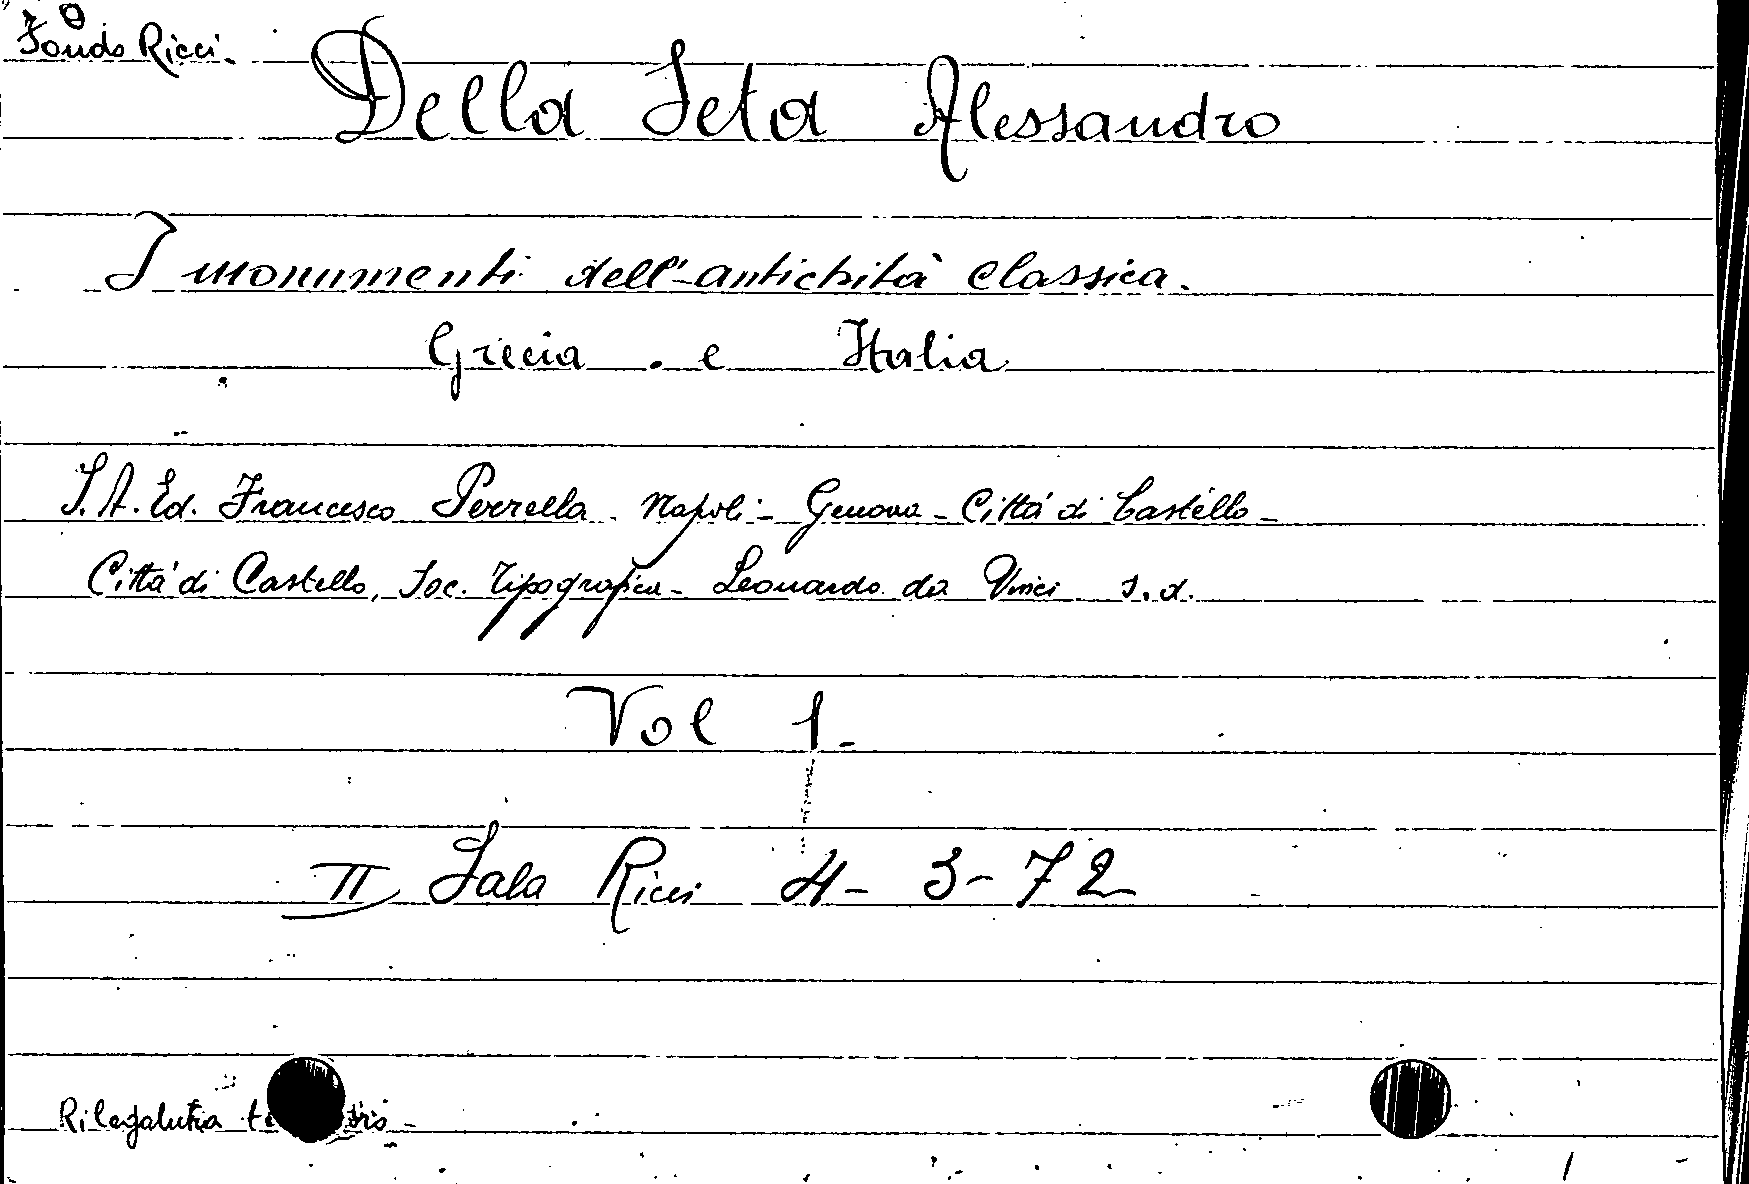 Fondo Ricci.
Della Seta Alessandro
I monumenti dell'antichità classica.
Grecia e Italia
S.A. Ed. Francesco Perrella - Napoli - Genova - Città di Castello -
Città di Castello, Soc. Tipografica - Leonardo da Vinci s.d.
Vol 1 -
II Sala Ricci 4 - 3 - 72
Rilegatura
1